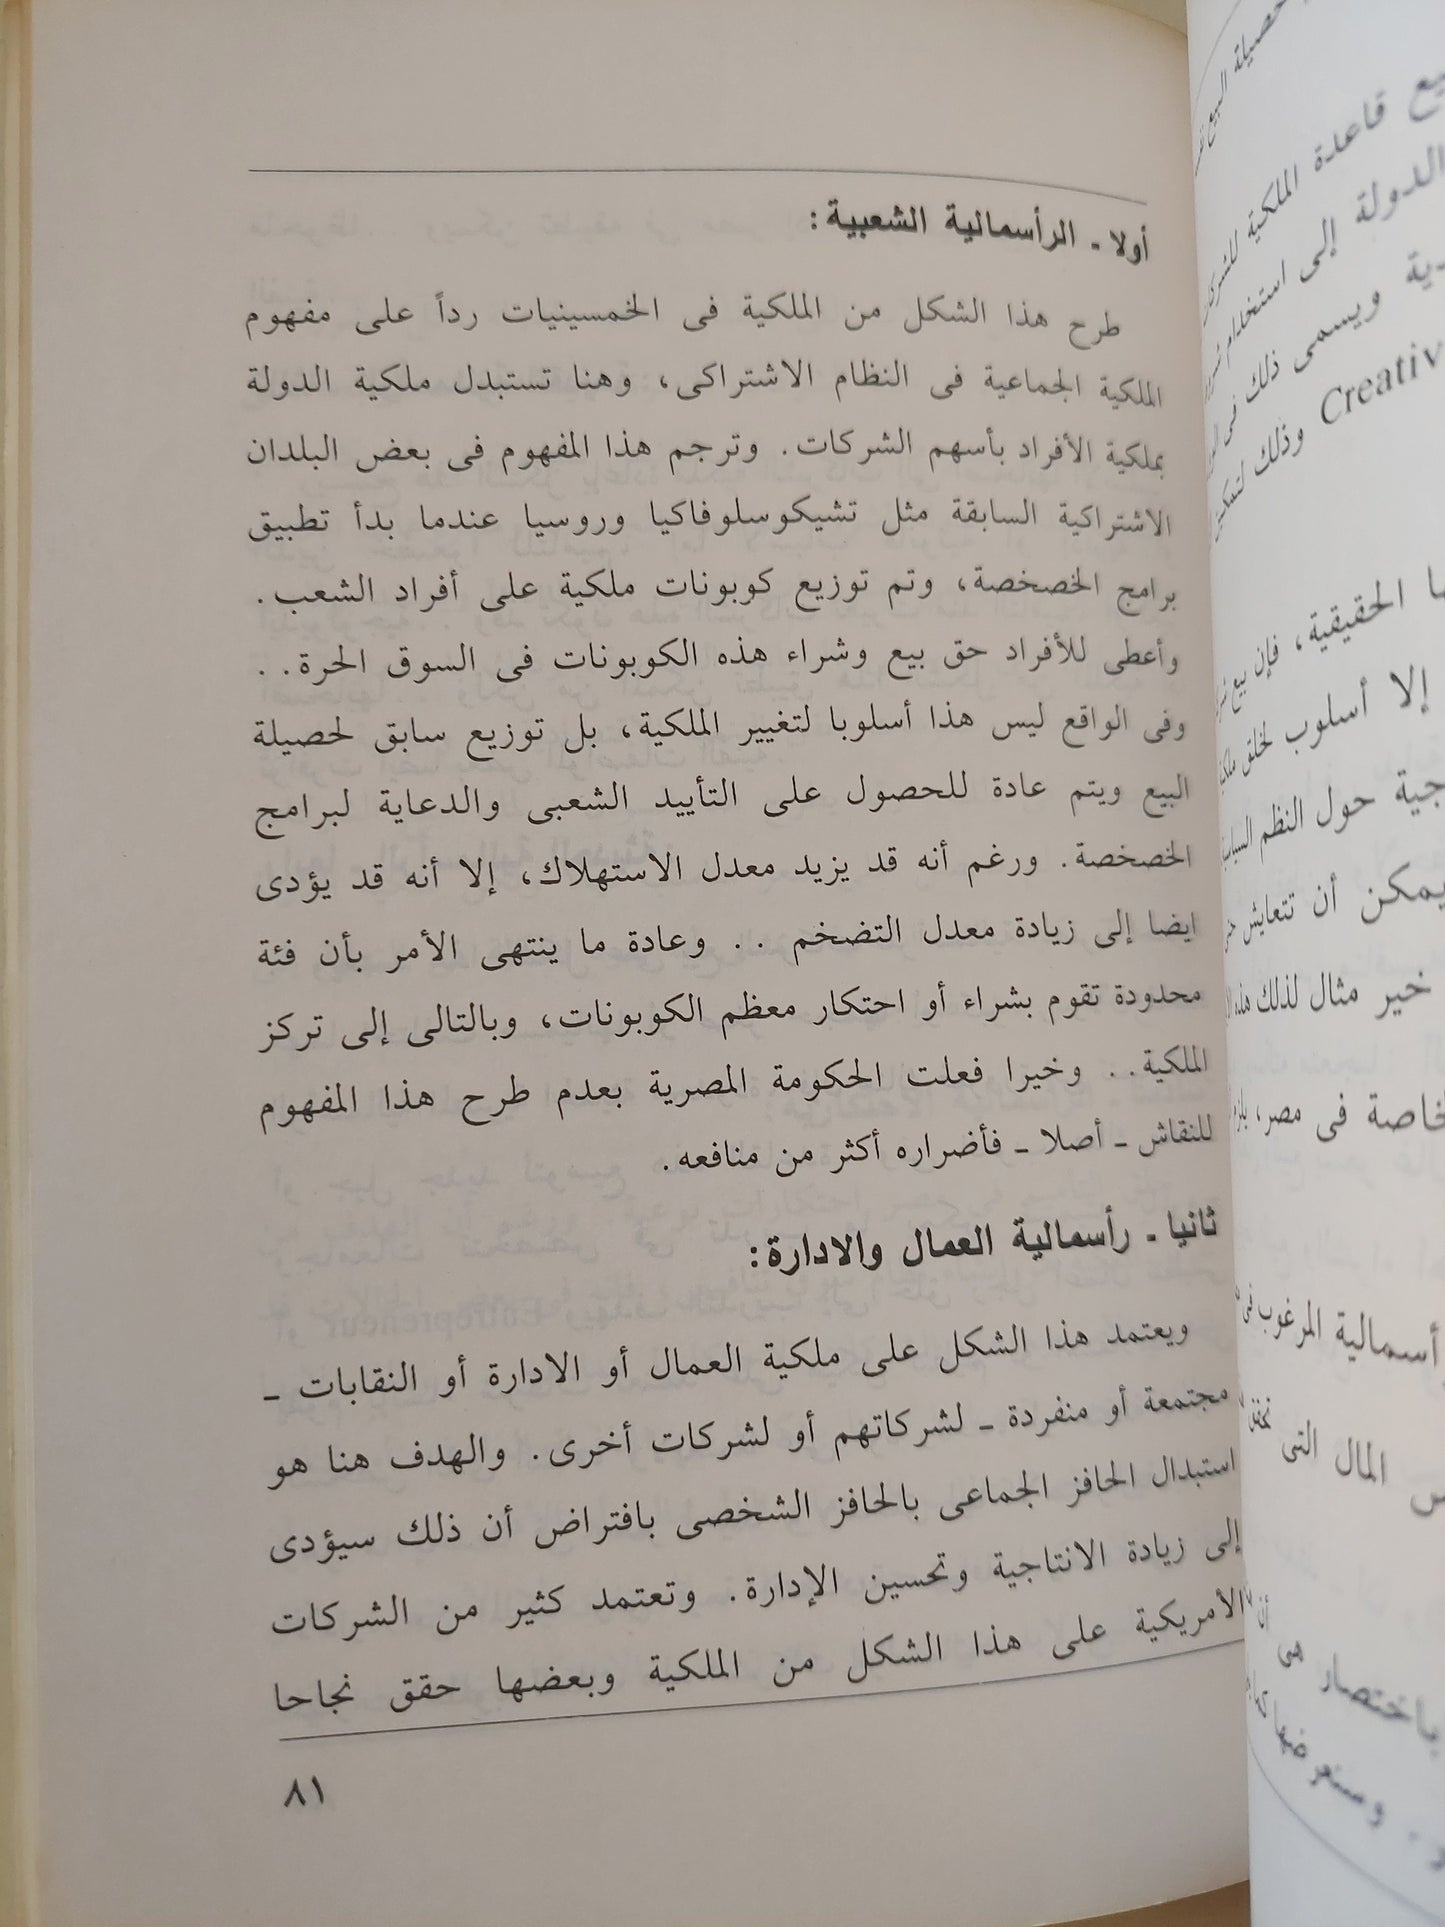 أولا ـ الرأسمالية الشعبية :
طرح هذا الشكل من الملكية فى الخمسينيات رداً على مفهوم
الملكية الجماعية فى النظام الاشتراكى، وهنا تستبدل ملكية الدولة
بملكية الأفراد بأسهم الشركات. وترجم هذا المفهوم فى بعض البلدان
الاشتراكية السابقة مثل تشيكوسلوفاكيا وروسيا عندما بدأ تطبيق
برامج الخصخصة، وتم توزيع كوبونات ملكية على أفراد الشعب.
وأعطى للأفراد حق بيع وشراء هذه الكوبونات فى السوق الحرة..
وفى الواقع ليس هذا أسلوبا لتغيير الملكية، بل توزيع سابق لحصيلة
البيع ويتم عادة للحصول على التأييد الشعبى والدعاية لبرامج
الخصخصة. ورغم أنه قد يزيد معدل الاستهلاك، إلا أنه قد يؤدى
ايضا إلى زيادة معدل التضخم .. وعادة ما ينتهى الأمر بأن فئة
محدودة تقوم بشراء أو احتكار معظم الكوبونات، وبالتالى إلى تركز
الملكية.. وخيرا فعلت الحكومة المصرية بعدم طرح هذا المفهوم
للنقاش ـ أصلا ـ فأضراره أكثر من منافعه.
ثانيا ـ رأسمالية العمال والادارة :
ويعتمد هذا الشكل على ملكية العمال أو الادارة أو النقابات ـ
مجتمعة أو منفردة ـ لشركاتهم أو لشركات أخرى. والهدف هنا هو
استبدال الحافز الجماعى بالحافز الشخصى بافتراض أن ذلك سيؤدى
إلى زيادة الانتاجية وتحسين الإدارة. وتعتمد كثير من الشركات
الأمريكية على هذا الشكل من الملكية وبعضها حقق نجاحا
٨١
حصيلة البيع
قاعدة الملكية
الدولة إلى استخدام
ويسمى ذلك فى
Creativ وذلك
الحقيقية، فإن بيع
إلا أسلوب لخلق
حول النظم
يمكن أن تتعايش
خير مثال لذلك هذه
فى مصر،
المرغوب فى
المال التى
هى
باختصار